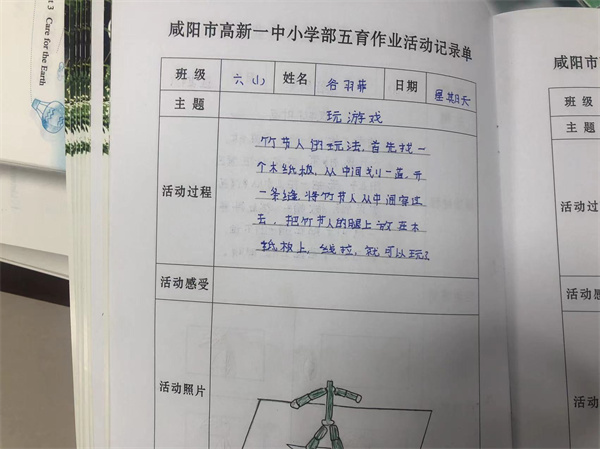 Care for the Earth
咸阳市高新一中小学部五育作业活动记录单
班 级 六山 姓名 谷羽菲 日期 星期天
主 题 玩游戏
活动过程
竹节人的玩法,首先找一
个木纸板,从中间划一
一条缝,将竹节人从中间穿过
去,把竹节人的腿上放在木
纸板上,线拉,就可以玩了
活动感受
活动照片
咸阳市
班 级
主 题
活动过
活动感受
活动照片